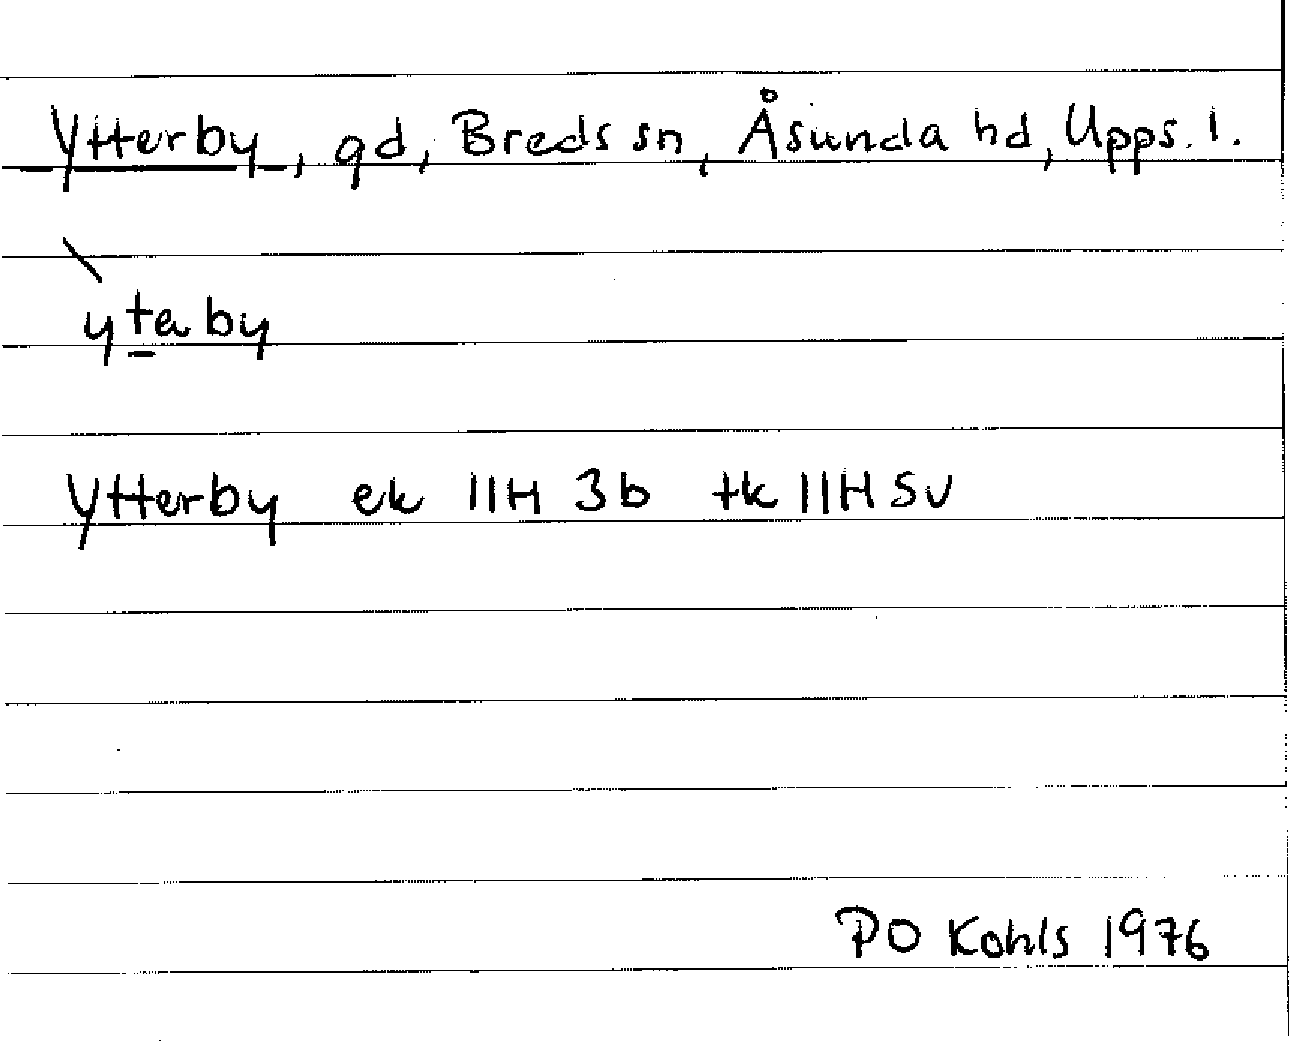 Ytterby, gd, Breds sn, Åsunda hd, Upps. l.
\
ytaby
Ytterby ek 11H 3b tk 11H SV
PO Kohls 1976